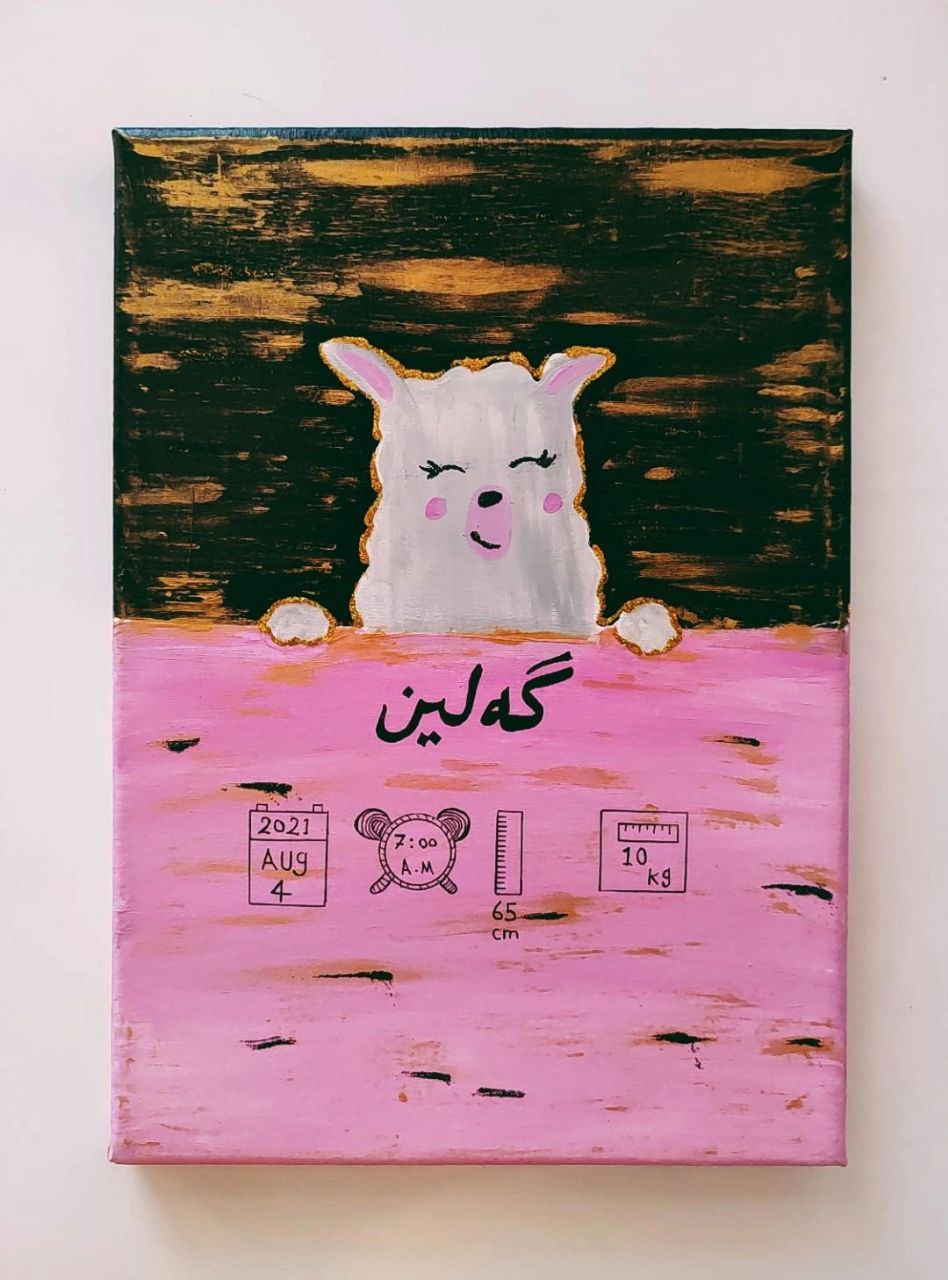 گەلین
2021
AUg
4
7:00
A.M
65
cm
10
kg